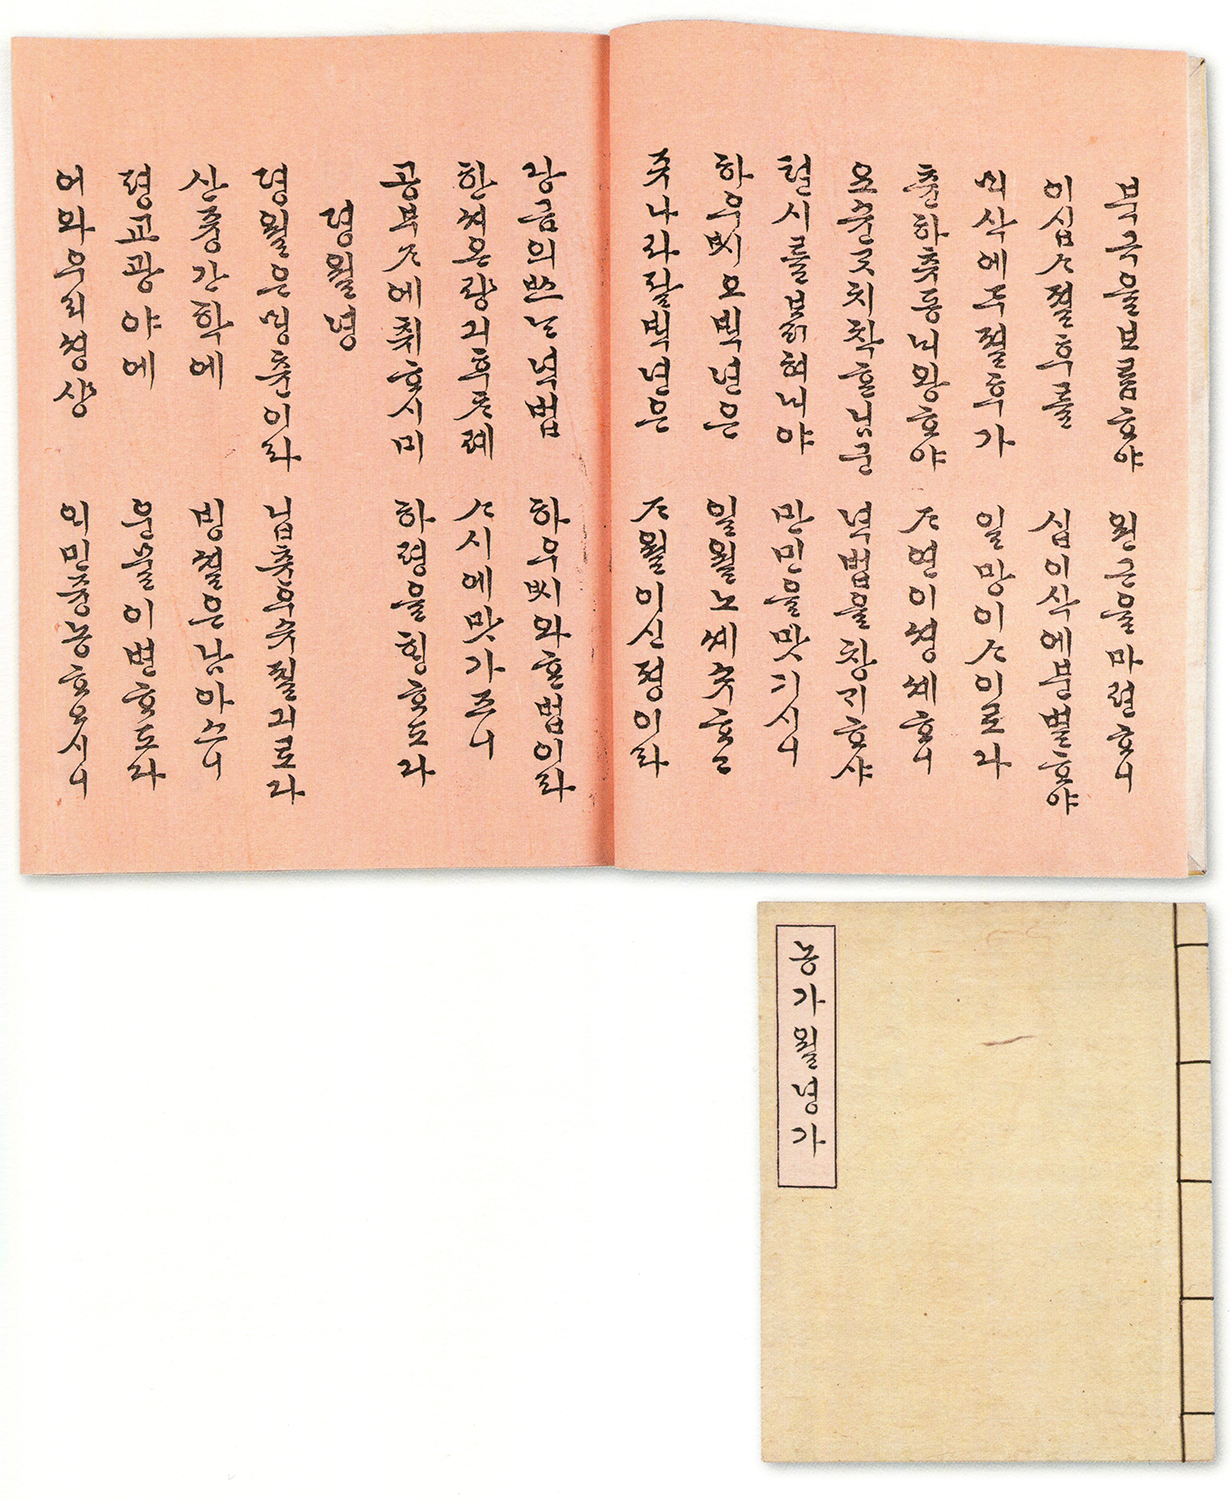 북극을보름ᄒᆞ야 원근을마련ᄒᆞ니
이십ᄉᆞ졀후를 십이삭에분별ᄒᆞ야
ᄆᆡ삭에두졀후가 일망이ᄉᆞ이로다
츈하츄동ᄂᆡ왕ᄒᆞ야 ᄌᆞ연이셩셰ᄒᆞ니
요슌ᄀᆞᆺ치착ᄒᆞᆫ님군 녁법을창ᄀᆡᄒᆞ샤
텬시를ᄇᆞᆰ혀ᄂᆡ야 만민을맛기시니
하우ᄡᅵ오ᄇᆡᆨ년은 일월노셰슈ᄒᆞ고
쥬나라팔ᄇᆡᆨ년은 ᄌᆞ월이신졍이라
당금의ᄡᅳᄂᆞᆫ녁법 하우ᄡᅵ와ᄒᆞᆫ법이라
한셔온량긔후ᄎᆞ례 ᄉᆞ시에맛가즈니
공부ᄌᆞ에취ᄒᆞ시미 하령을ᄒᆡᆼᄒᆞ도다
졍월녕
졍월은ᄆᆡᆼ츈이라 닙츈우슈졀긔로다
산즁간학에 빙셜은남아스니
평교광야에 운물이변ᄒᆞ도다
어와우리셩샹 ᄋᆡ민즁농ᄒᆞ오시니
농가월녕가